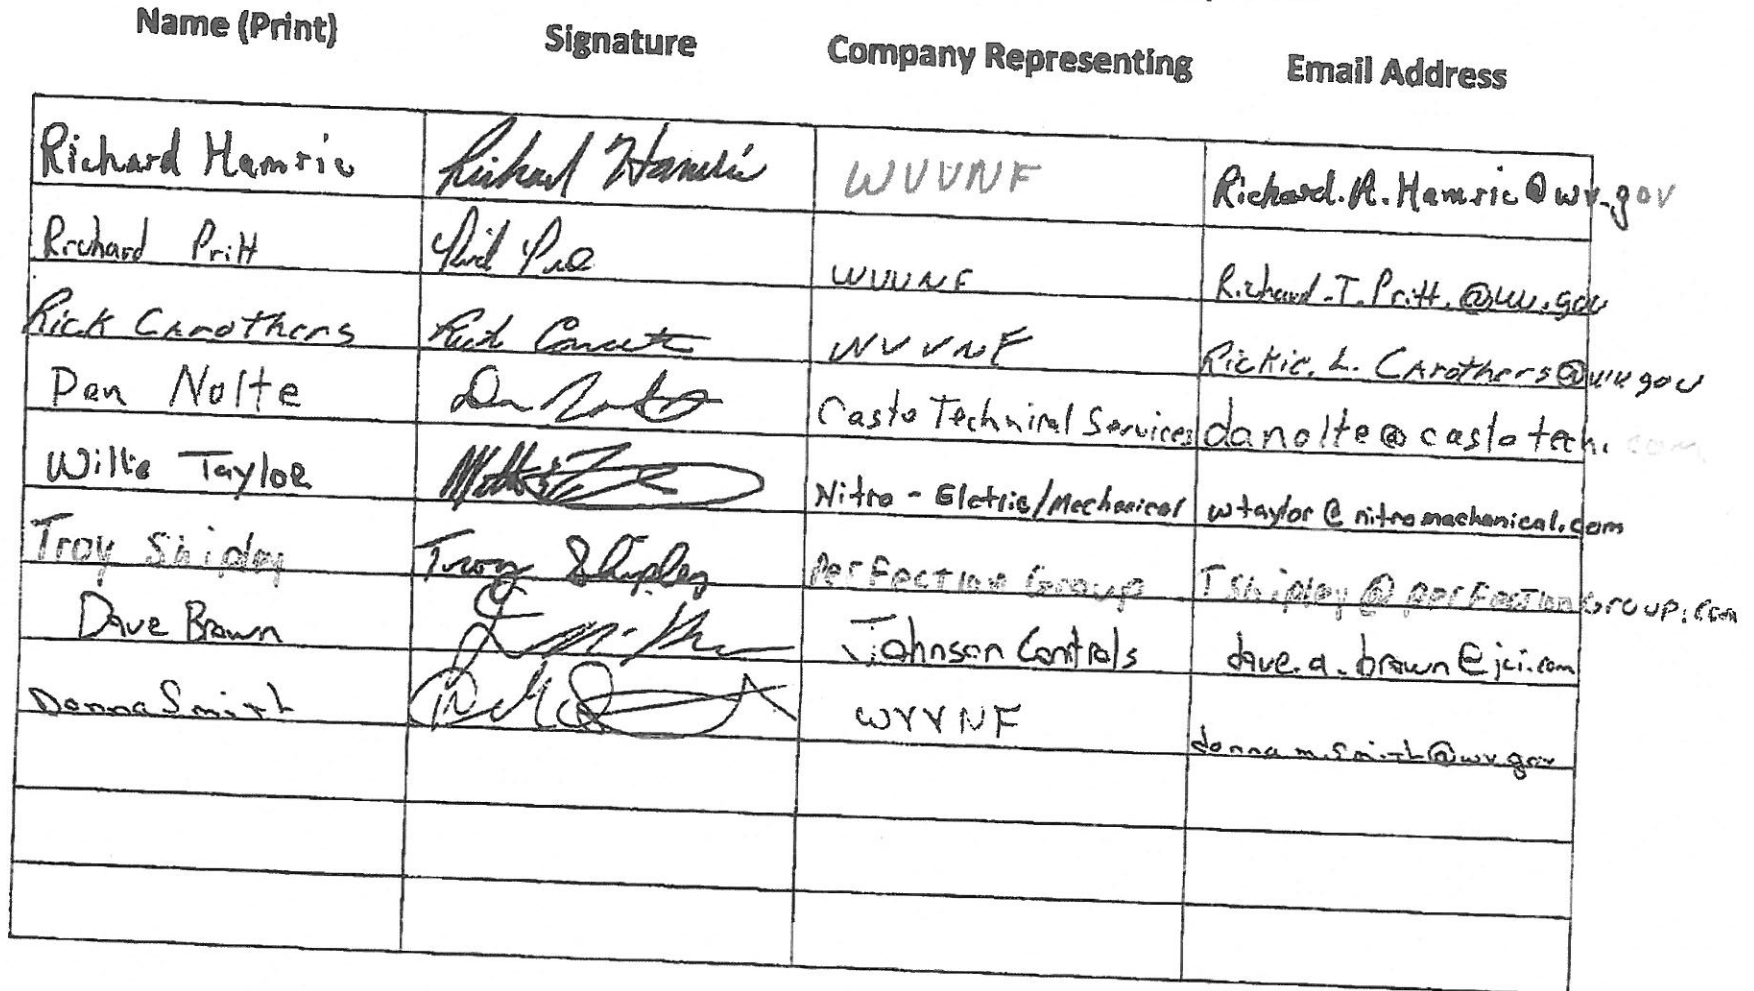 Name (Print) Signature Company Representing Email Address
Richard Hamric Richard Hamric WVVNF Richard.A.Hamric@wv.gov
Richard Pritt WVVNF Richard.T.Pritt.@wv.gov
Rick Carothers Rick WVVNF Rickie.L.Carothers@wv.gov
Dan Nolte Dan Nolte Casto Technical Services danolte@castotech.com
Willie Taylor Nitro - Eletric/Mechanical wtaylor@nitromechanical.com
Troy Shipley Troy Shipley Perfection Group TShipley@perfectionGroup.com
Dave Brown Johnson Controls dave.a.brown@jci.com
Donna Smith WVVNF donna.m.smith@wv.gov